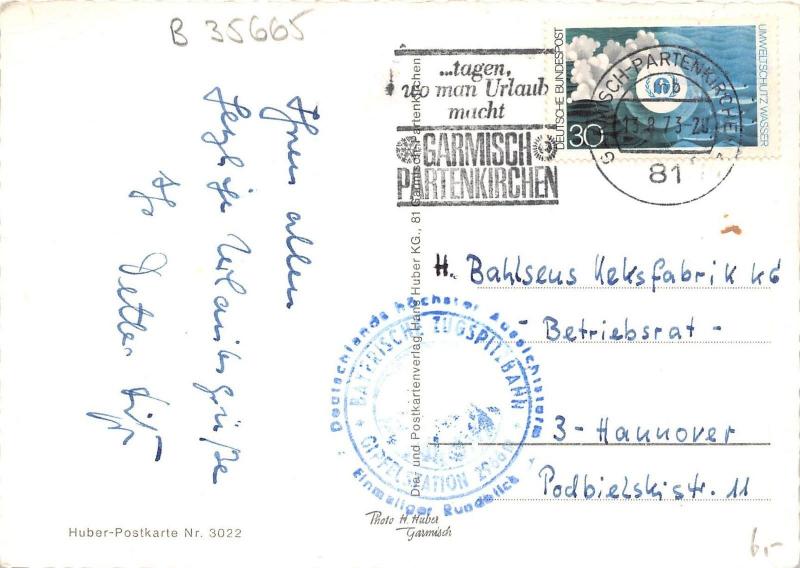 B 35665
Ihnen allen
herzliche Urlaubsgrüße
Ihr Detlev
Huber-Postkarte Nr. 3022
Dia- und Postkartenverlag Hans Huber KG., 81 Garmisch-Partenkirchen
Photo H. Huber
Garmisch
...tagen,
wo man Urlaub
macht
GARMISCH
PARTENKIRCHEN
DEUTSCHE BUNDESPOST
30
UMWELTSCHUTZ WASSER
GARMISCH-PARTENKIRCHEN
81
H. Bahlsens Keksfabrik KG
- Betriebsrat -
3-Hannover
Podbielskistr. 11
Deutschlands höchster Aussichtsturm
BAYERISCHE ZUGSPITZBAHN
GIPFELSTATION
Einmaliger Rundblick
6,-